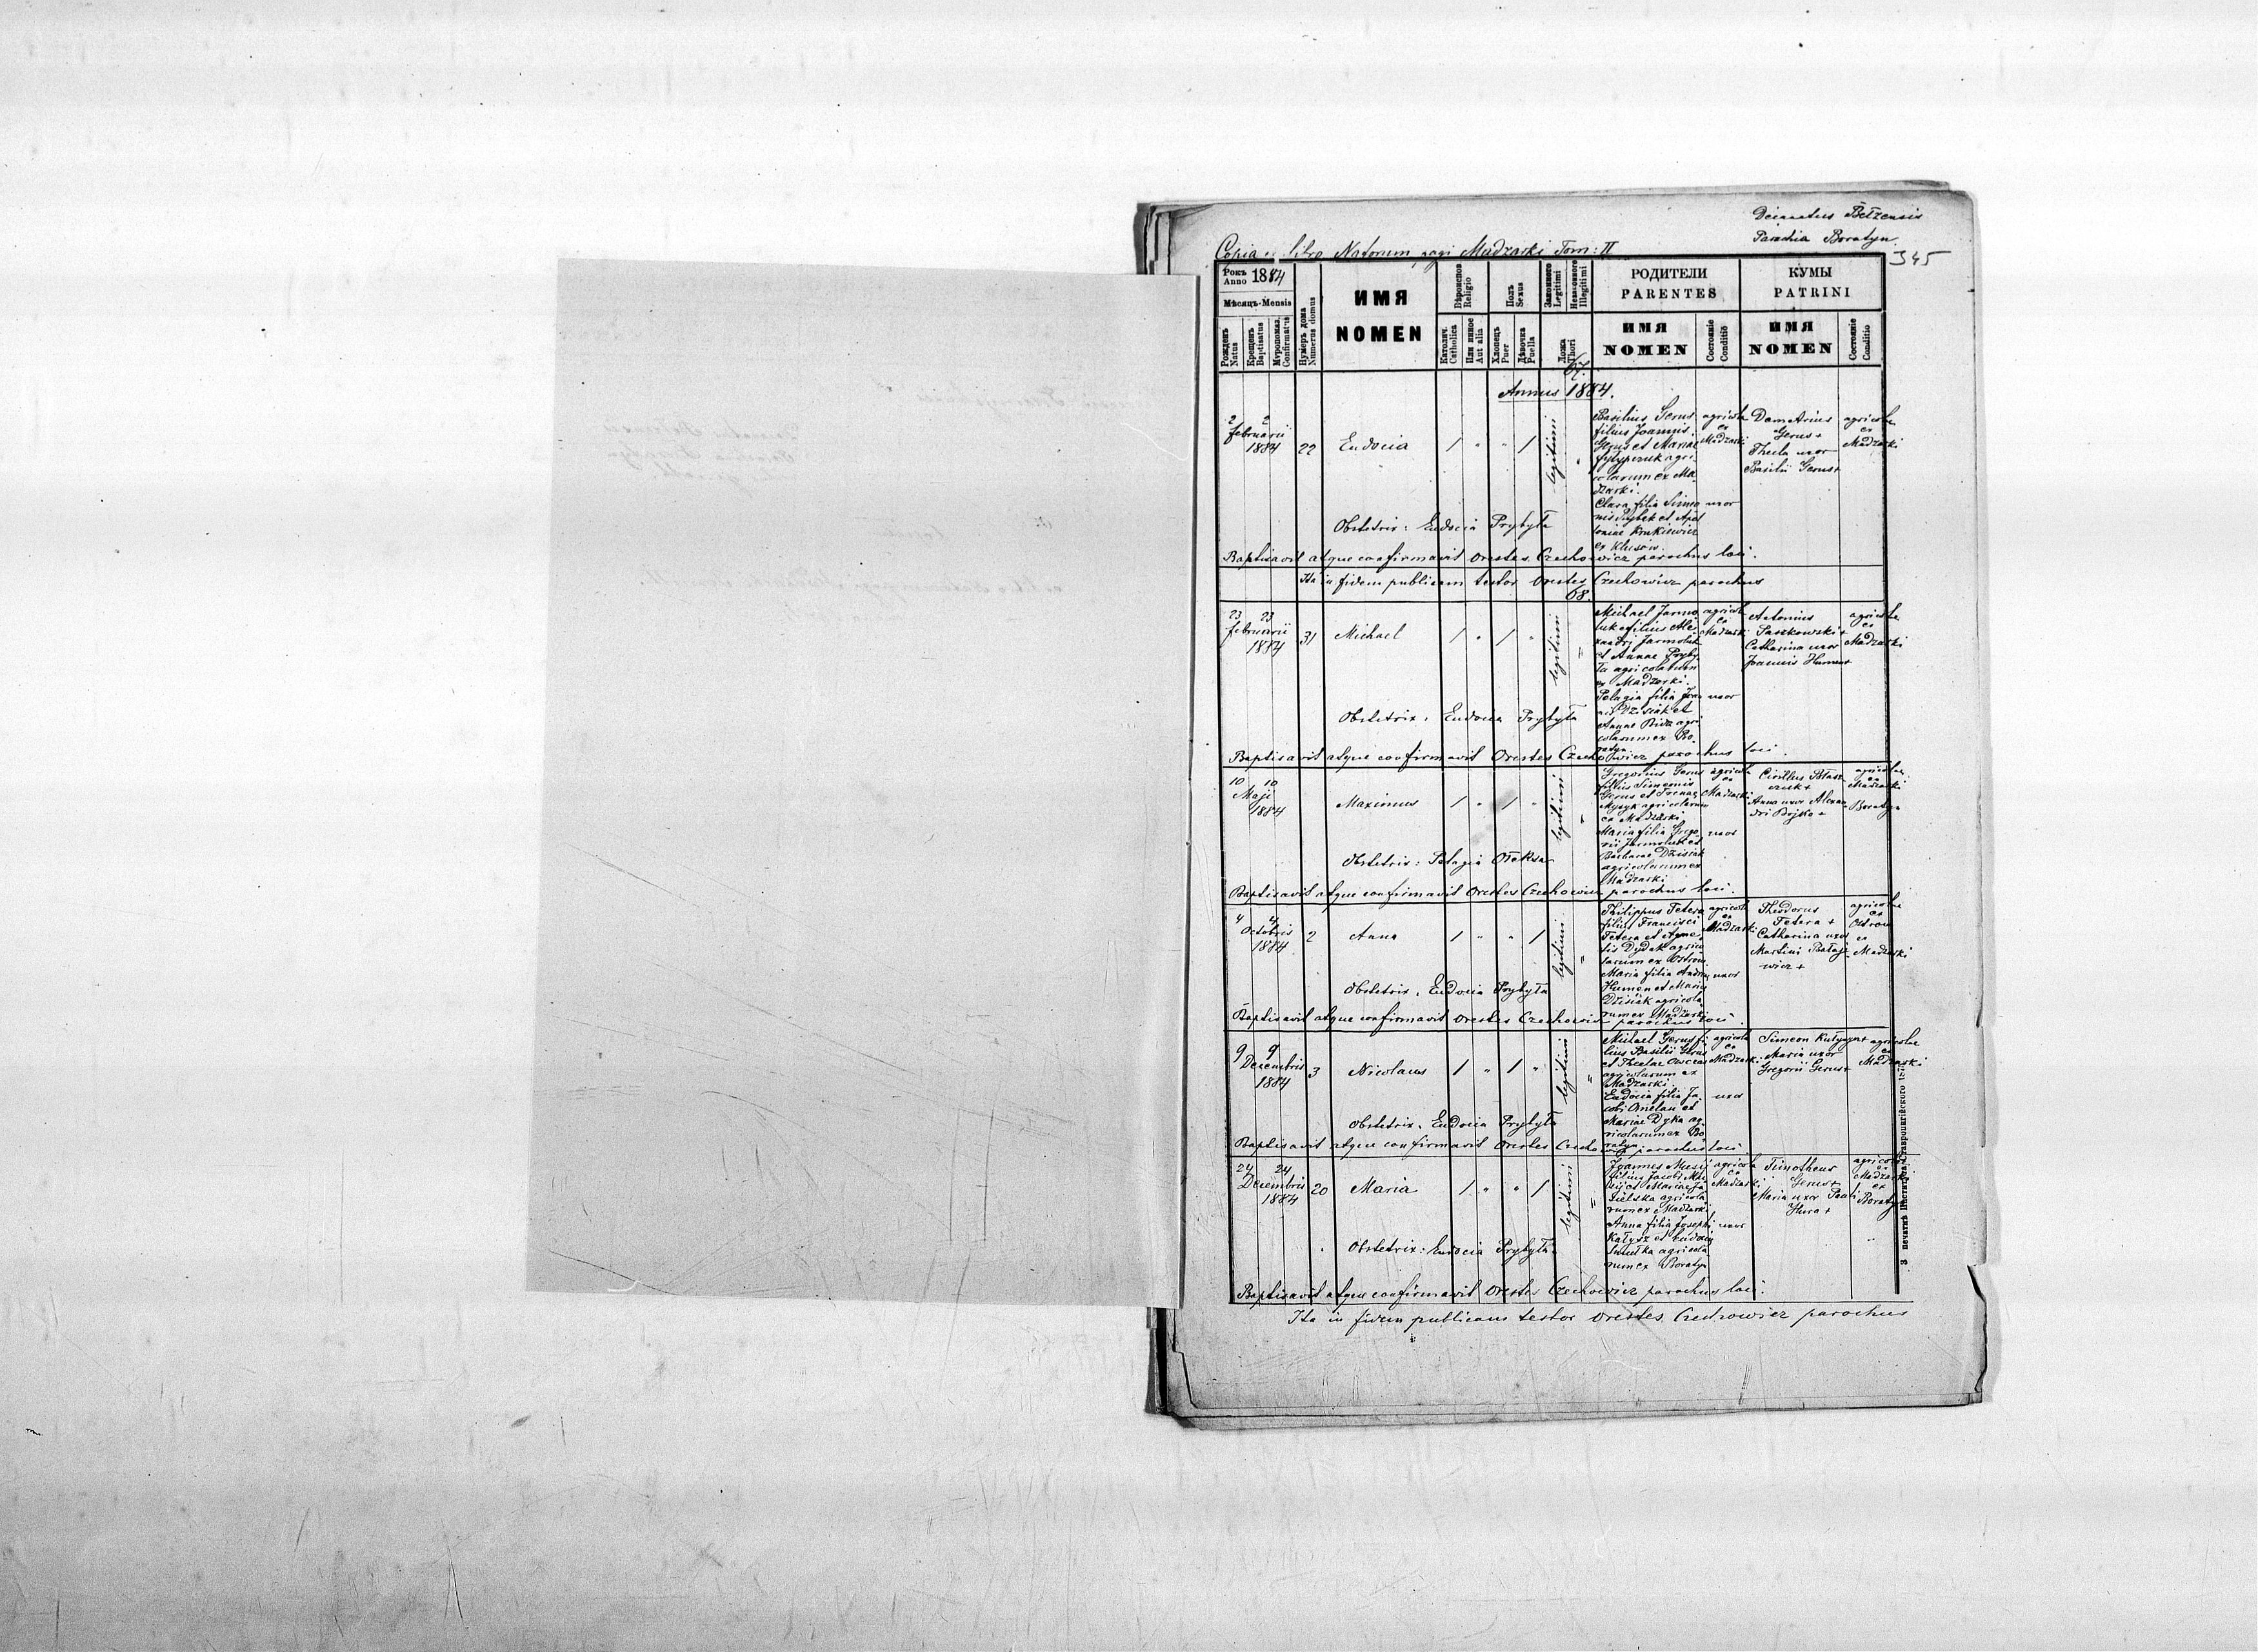 Decanatus Bełzensis
Parochia Boratyn
345
Copia libro Natorum pagi Madzarki Tom: II
Рокъ Anno 1884
Мѣсяцъ-Mensis
Рожденъ Natus
Крещенъ Baptisatus
Мѵропомаз. Confirmatus
Нумеръ дома Numerus domus
ИМЯ
NOMEN
Religio
Католич. Catholica
Или инное Aut alia
Полъ Sexus
Хлопецъ Puer
Дѣвочка Puella
Законного Legitimi
Незаконного Illegitimi
Ложа Thori
РОДИТЕЛИ
PARENTES
ИМЯ
NOMEN
Состояніе Conditio
КУМЫ
PATRINI
ИМЯ
NOMEN
Состояніе Conditio
67.
Annus 1884.
2 2
februarii
1884
22
Eudocia
/ " " /
legitimi
"
Basilius Gerus
filius Joannis
Gerus et Mariae
agri
colarum ex Ma
dzarki.
Clara filia Simeo
nis et Apol
loniae Krukiewicz
ex Klusow.
agricola
ex
Madzarki
uxor
Demetrius
Gerus +
Thecla uxor
Basilii Gerus +
agricolae
ex
Madzarki
Obstetrix: Eudocia Prybyła
Baptisavit atque confirmavit Orestes Czechowicz parochus loci.
Ita in fidem publicam testor Orestes Czechowicz parochus
68.
23 23
februarii
1884
31
Michael
/ " / "
legitimi
"
Michael Jarmo
luk filius Ale
xandri Jarmoluk
et Annae Pryby
ła agricolarum
ex Madzarki.
Pelagia filia Joan
nis Dzisiak et
Annae agri
colarum ex Bo
ratyn
agricola
ex
Madzarki
uxor
Antonius
Paszkowski +
Catharina uxor
Joannis Humen +
agricolae
ex
Madzarki
Obstetrix: Eudocia Prybyła
Baptisavit atque confirmavit Orestes Czechowicz parochus loci.
10 10
Maji
1884
Maximus
/ " / "
legitimi
"
Gregorius Gerus
filius Simeonis
Gerus et
agricolarum
ex Madzarki
Maria filia Grego
rii Jarmoluk et
Barbarae Dzisiak
agricolarum ex
Madzarki
agricola
ex
Madzarki
uxor
Cirillus Błasz
czuk +
Anna uxor Alexan
dri Bojko +
agricolae
ex
Madzarki
Boratyn
Obstetrix: Pelagia Ołeksa
Baptisavit atque confirmavit Orestes Czechowicz parochus loci.
4 4
Octobris
1884
2
Anna
/ " " /
legitimi
"
Philippus Tetera
filius Francisci
Tetera et Agne
tis Dydak agrico
larum ex Ostrow
Maria filia Andreae
Humen et Mariae
Dzisiak agricola
rum ex Madzarki
agricola
ex
Madzarki
uxor
Theodorus
Tetera +
Catharina uxor
Martini Bałaje
wicz +
agricolae
ex
Ostrow
ex
Madzarki
Obstetrix: Eudocia Prybyła
Baptisavit atque confirmavit Orestes Czechowicz parochus loci.
9 9
Decembris
1884
3
Nicolaus
/ " / "
legitimi
"
Michael Gerus fi
lius Basilii Gerus
et Theclae
agricolarum ex
Madzarki.
Eudocia filia Ja
cobi Omelan et
Mariae Dyka ag
ricolarum ex Bo
ratyn
agricola
ex
Madzarki
uxor
Simeon +
Maria uxor
Gregorii Gerus +
agricolae
ex
Madzarki
Obstetrix: Eudocia Prybyła
Baptisavit atque confirmavit Orestes Czechowicz parochus loci.
24 24
Decembris
1884
20
Maria
/ " " /
legitimi
"
Joannes Musij
filius Jacobi Mu
sij et Mariae Ja
sielska agricola
rum ex Madzarki
Anna filia Josephi
et Eudociae
agricola
rum ex Boratyn
agricola
ex
Madzarki
uxor
Timotheus
Gerus +
Maria uxor Pauli
Hura +
agricolae
ex
Madzarki
ex
Boratyn
Obstetrix: Eudocia Prybyła
Baptisavit atque confirmavit Orestes Czechowicz parochus loci.
Ita in fidem publicam testor Orestes Czechowicz parochus